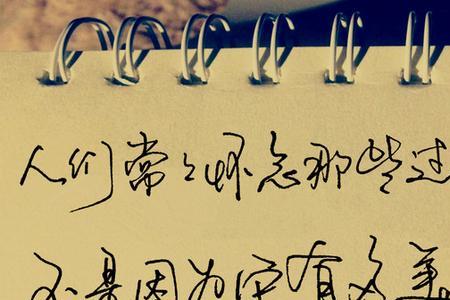 人们常々怀念那些过
不是因为它有多美